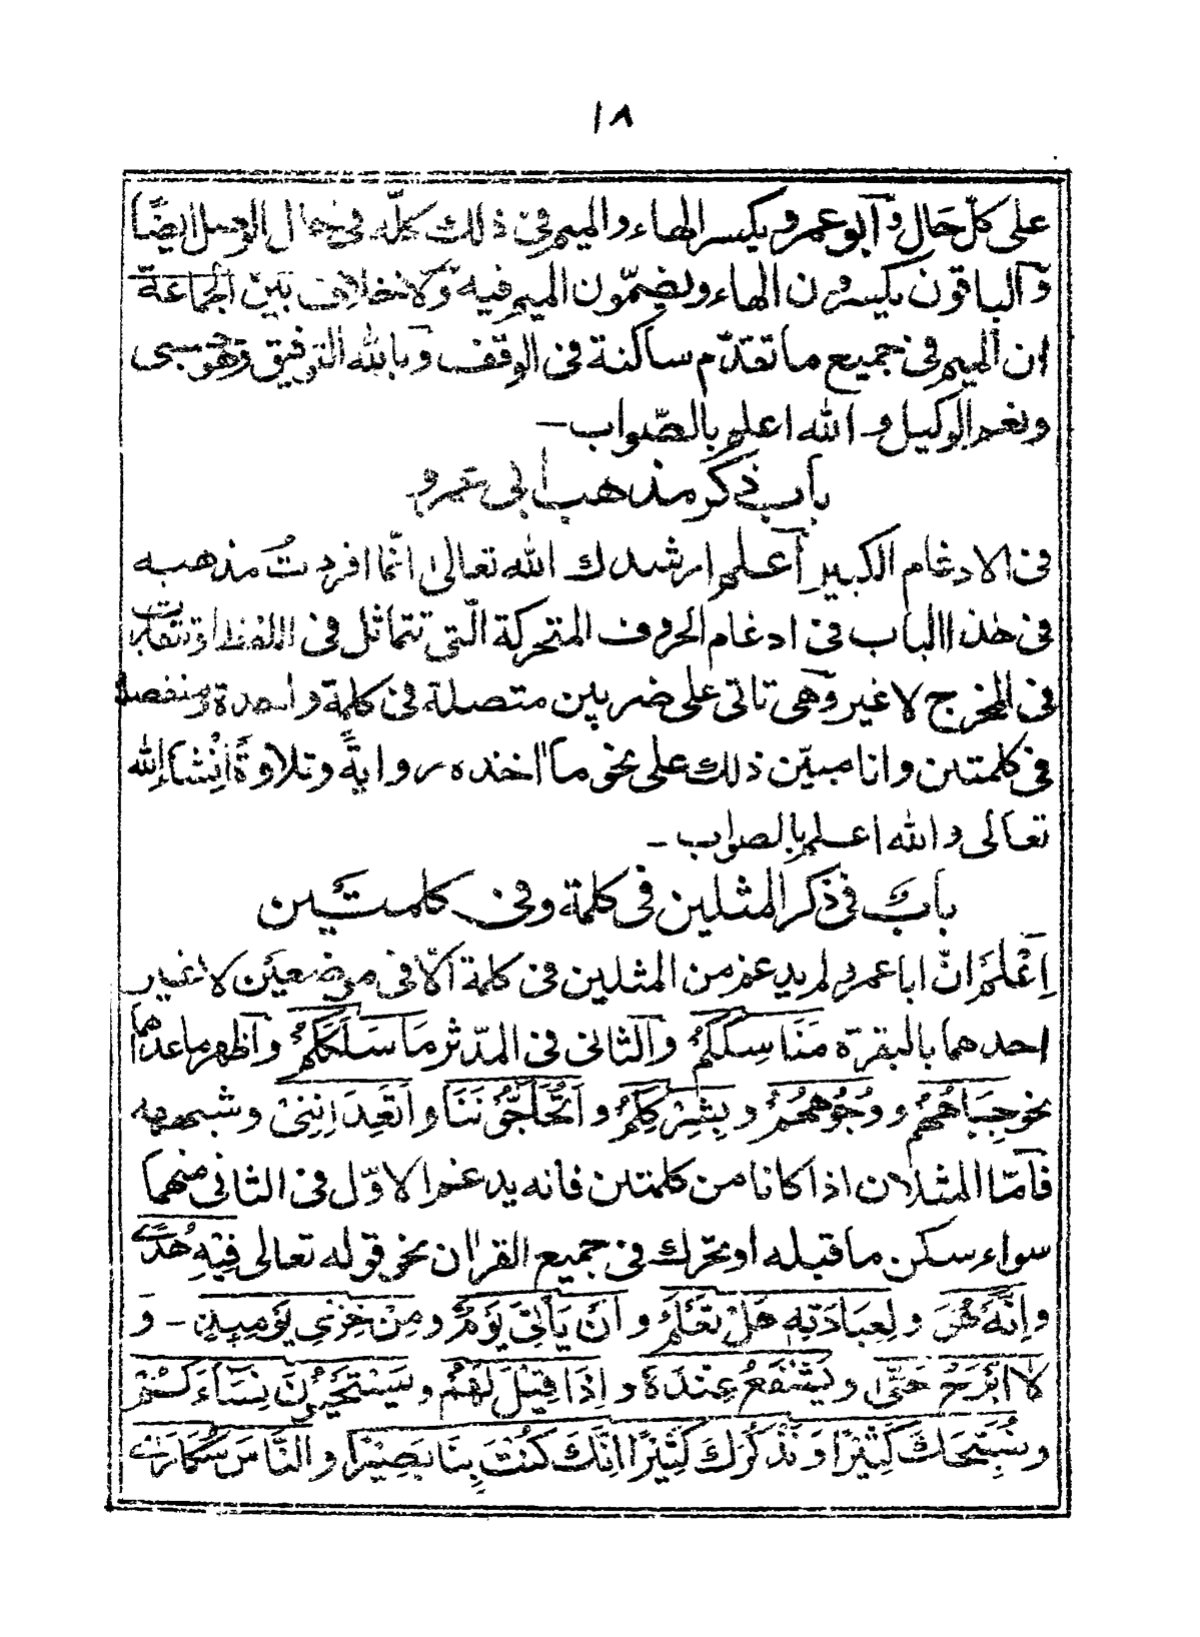 ١٨
على كلّ حَال وَآبو عمرو يكسر الهاء والميم فى ذلك كلّه فى حال الوصل ايضًا
وَٓالباقون يكسرون الهاء ويضمّون الميم فيه وَلا خلاف بَين الجماعة
ان الميم فى جميع ما تقدّم ساكنة فى الوقف وَبالله التوفيق وَهو حسبى
ونعم الوكيل و الله اعلم بالصّواب —
باب ذكر مذهب أبى عمرو
فى الادغام الكبير اَعلم ارشدك الله تعالىٰ انّما افردتُ مذهبه
فى هٰذا الباب فى ادغام الحروف المتحركة الّتى تتماثل فى اللفظ او تتقارب
فى المخرج لا غير وَهى تاتى على ضربين متصلة فى كلمة واحدة ومنفصلة
فى كلمتين وانا مبيّن ذلك على نحو ما اخذه روايةً وتلاوةً اِنْشاء الله
تعالى والله اعلم بالصواب —
باب فى ذكر المثلين فى كلمة وفى كلمتين
اِعْلَم انّ ابا عمرو لم يدغم من المثلين فى كلمة الّا فى موضعين لا غير
احدهما بالبقرة مَنَاسِكَكُمْ وَالثانى فى المدّثر مَا سَلَكَكُمْ وَاَظهر ما عداهما
نحو جِبَاهُهُمْ و وُجُوهُهُمْ و بِشِرْكِكُمْ و اَتُحَاجُّونَنَا و اَتَعِدَانِنِىْ و شبهه
فَاَمّا المثلان اذا كانا من كلمتين فانه يدغم الاوّل فى الثانى منهما
سواء سكن ما قبله او تحرّك فى جميع القراٰن نحو قوله تعالى فِيْهِ هُدًى
و اِنَّهٗ هُوَ و لِعِبَادَتِهٖ هَلْ تَعْلَمُ و اَنْ يَأْتِىَ يَوْمٌ و مِنْ خِزْىِ يَوْمِئِذٍ — وَ
لَا اَبْرَحُ حَتّٰى و يَشْفَعُ عِنْدَهٗ و اِذَا قِيْلَ لَهُمْ و يَسْتَحْيُوْنَ نِسَاءَكُمْ
و نُسَبِّحَكَ كَثِيْرًا وَنَذْكُرَكَ كَثِيْرًا اِنَّكَ كُنْتَ بِنَا بَصِيْرًا و النَّاسَ سُكَارٰى